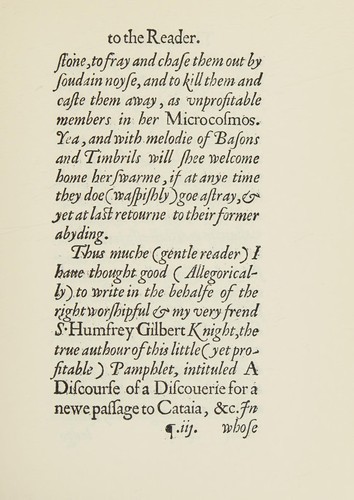 to the Reader.
ſtone, to fray and chaſe them out by
ſoudain noyſe, and to kill them and
caſte them away, as vnprofitable
members in her Microcoſmos.
Yea, and with melodie of Baſons
and Timbrils will ſhee welcome
home her ſwarme, if at anye time
they doe (waſpiſhly) goe aſtray, &
yet at laſt retourne to their former
abyding.
Thus muche (gentle reader) I
haue thought good (Allegorical-
ly) to write in the behalfe of the
right worſhipful & my very frend
S. Humfrey Gilbert Knight, the
true authour of this little (yet pro-
fitable) Pamphlet, intituled A
Diſcourſe of a Diſcouerie for a
newe paſſage to Cataia, &c. In
¶.iij. whoſe